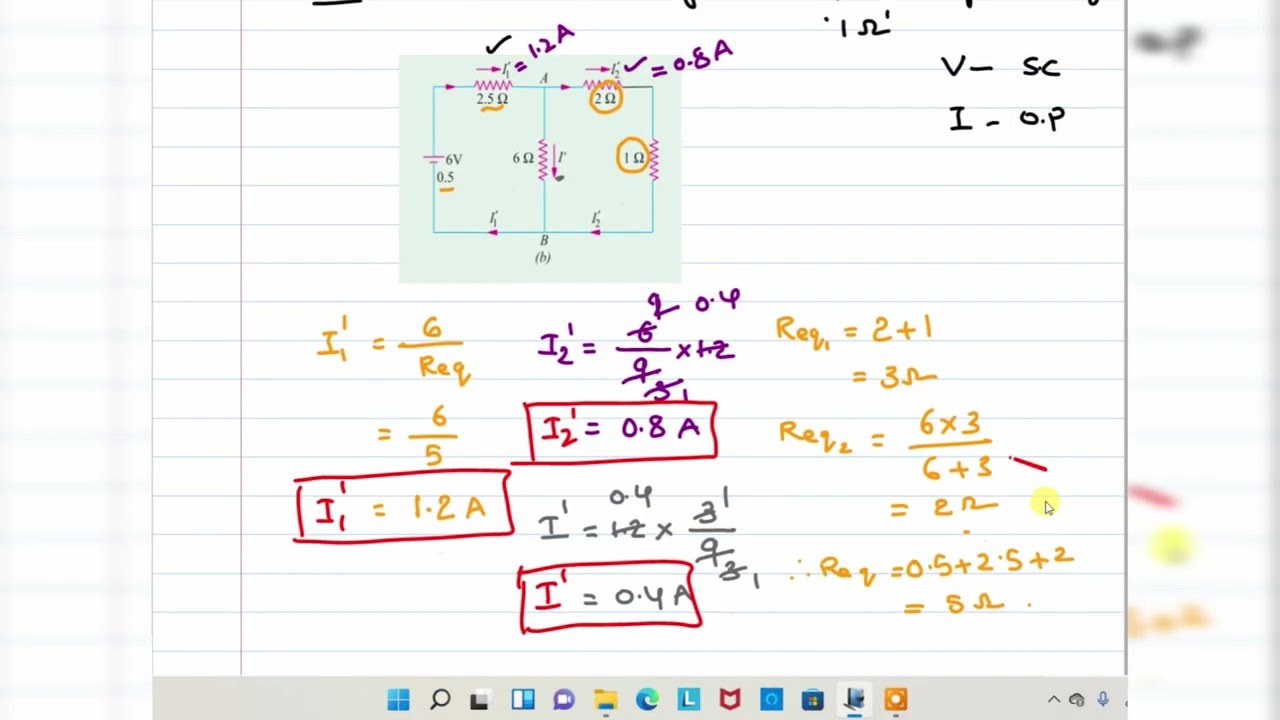 '1Ω'
V - SC
I - O.P
I₁' = 1.2 A
I₂' = 0.8 A
A
2.5 Ω
2 Ω
6V
0.5
6 Ω
I'
1 Ω
I₁'
I₂'
B
(b)
I₁' = 6/Req
= 6/5
I₁' = 1.2 A
I₂' = 6/9 × 1.2
2 0.4
3 1
I₂' = 0.8 A
I' = 1.2 × 3/9
0.4 1
3 1
I' = 0.4 A
Req₁ = 2+1
= 3Ω
Req₂ = 6×3/6+3
= 2Ω
∴ Req = 0.5+2.5+2
= 5Ω